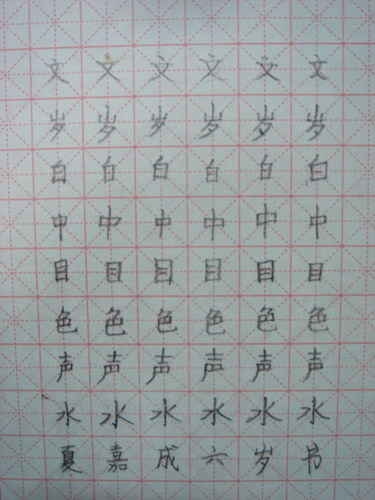 文文文文文文
岁岁岁岁岁岁
白白白白白白
中中中中中中
目目目目目目
色色色色色色
声声声声声声
水水水水水水
夏嘉成六岁书